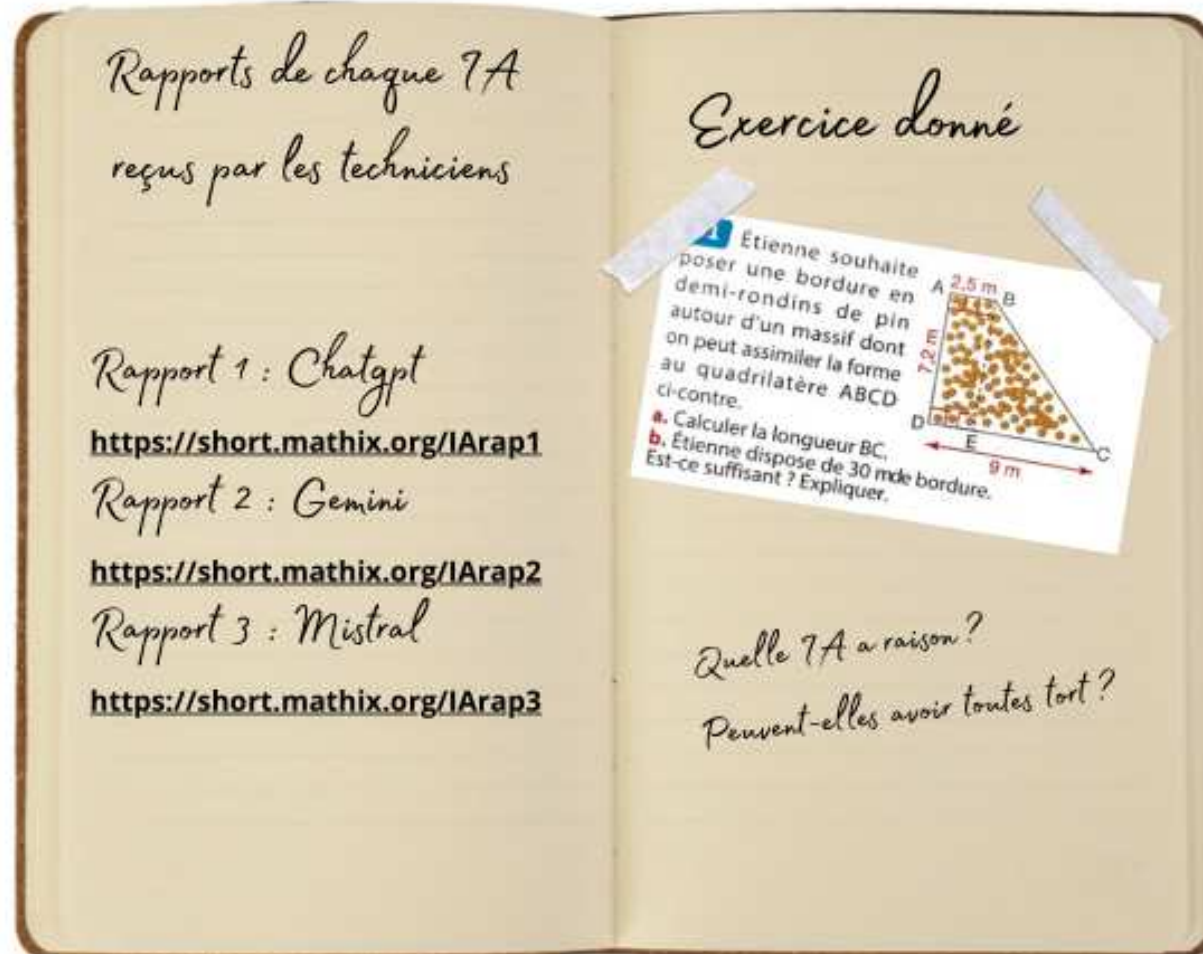 Rapports de chaque IA
reçus par les techniciens
Rapport 1 : Chatgpt
https://short.mathix.org/IArap1
Rapport 2 : Gemini
https://short.mathix.org/IArap2
Rapport 3 : Mistral
https://short.mathix.org/IArap3
Exercice donné
Étienne souhaite
poser une bordure en
demi-rondins de pin
autour d'un massif dont
on peut assimiler la forme
au quadrilatère ABCD
ci-contre.
a. Calculer la longueur BC.
b. Étienne dispose de 30 mde bordure.
Est-ce suffisant ? Expliquer.
A 2,5 m B
7,2 m
D
E
C
9 m
Quelle IA a raison ?
Peuvent-elles avoir toutes tort ?